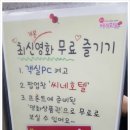 최신영화 무료 즐기기
1. 객실PC 켜고
2. 팝업창 "씨네호텔"
3. 프론트에 준비된
"영화상품권"으로 무료로
보실 수 있어요~